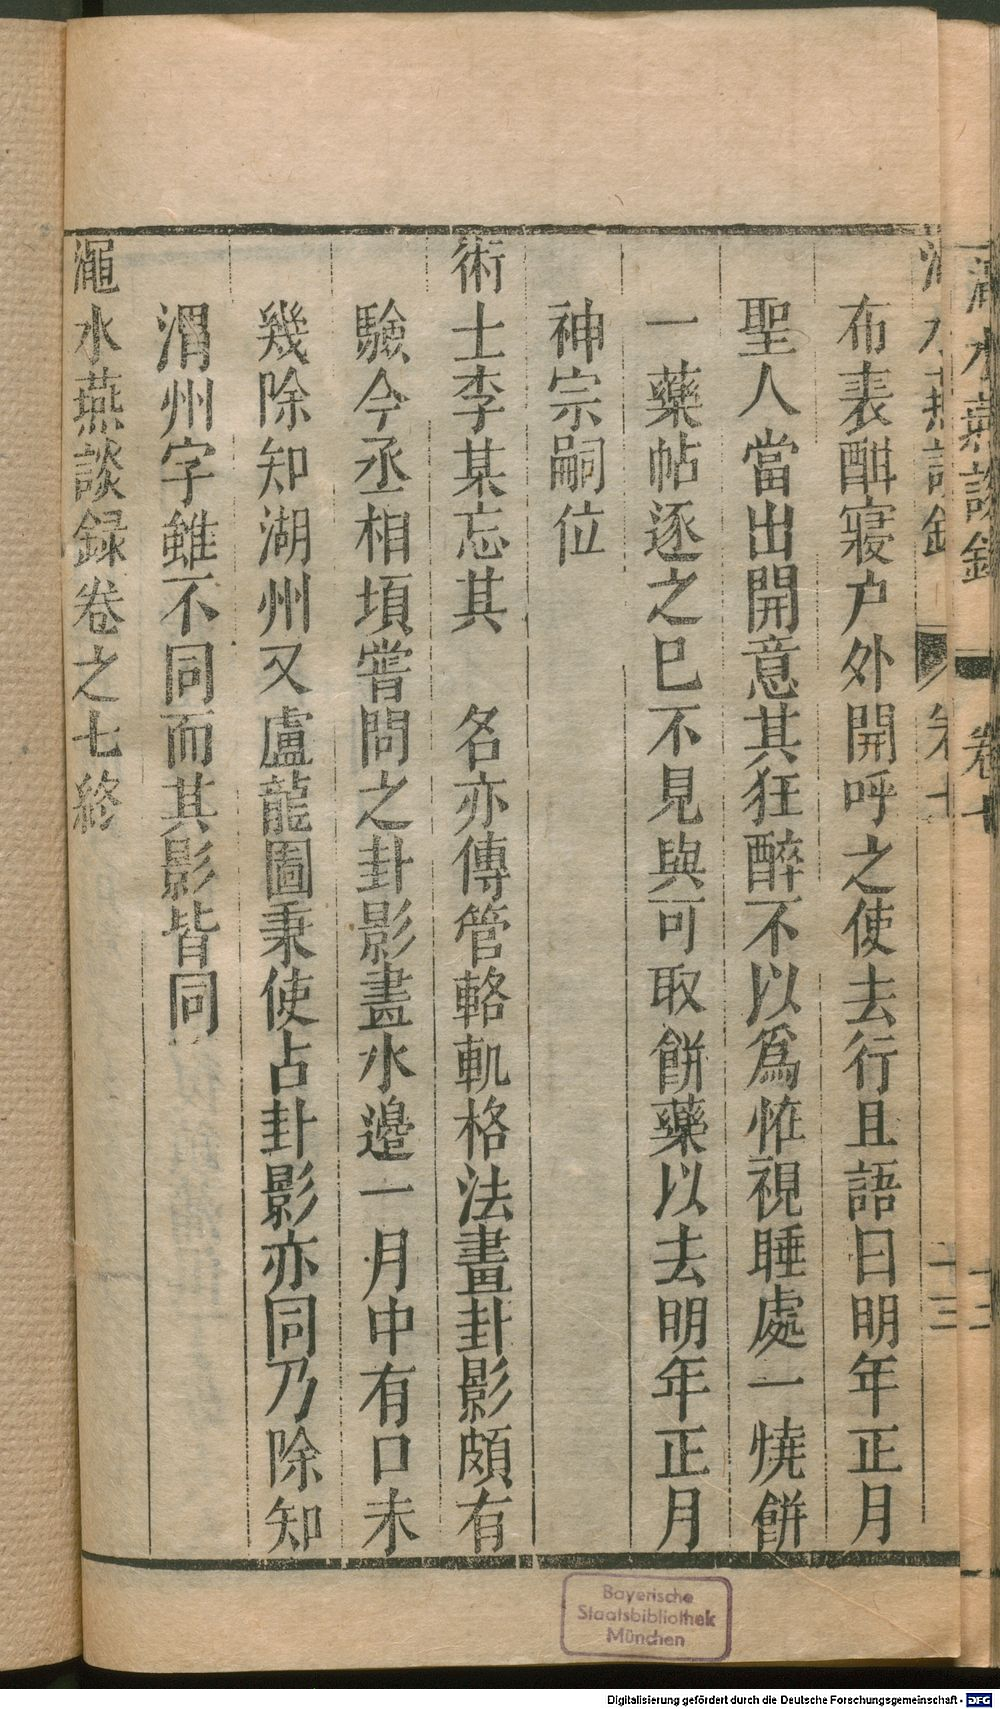 布表酣寢户外開呼之使去行且語曰明年正月
聖人當出開意其狂醉不以爲恠視睡處一燒餅
一藥帖逐之巳不見與可取餅藥以去明年正月
神宗嗣位
術士李某忘其　名亦傳管輅軌格法畫卦影頗有
驗今丞相頊嘗問之卦影畫水邉一月中有口未
幾除知湖州又盧龍圖秉使占卦影亦同乃除知
渭州字雖不同而其影皆同
澠水燕談録卷之七終
水燕談録
卷七
十三
Bayerische
Staatsbibliothek
München
Digitalisierung gefördert durch die Deutsche Forschungsgemeinschaft - DFG